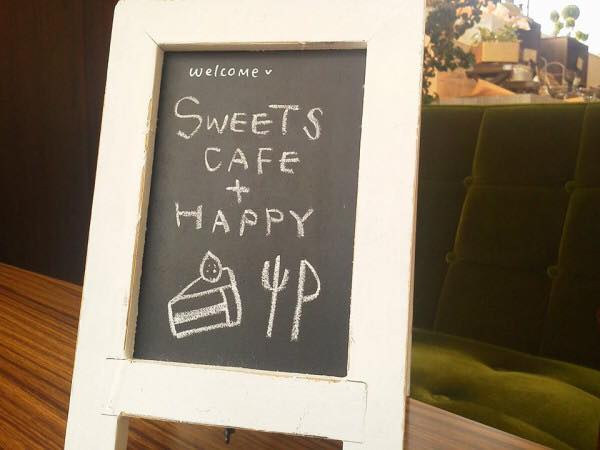 welcome
SWEETS
CAFE
+
HAPPY